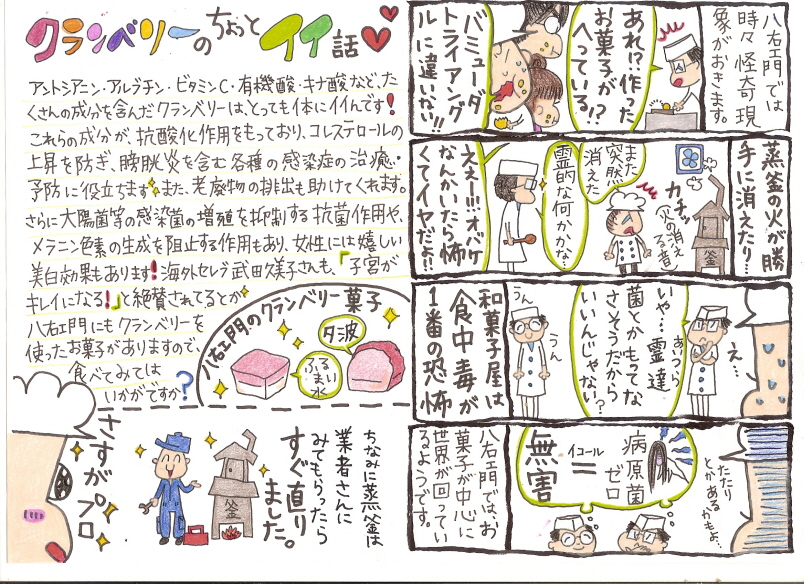 クランベリーのちょっとイイ話
アントシアニン・アルブチン・ビタミンC・有機酸・キナ酸など、た
くさんの成分を含んだクランベリーは、とっても体にイイんです!
これらの成分が、抗酸化作用をもっており、コレステロールの
上昇を防ぎ、膀胱炎を含む各種の感染症の治癒・
予防に役立ちます。また、老廃物の排出も助けてくれます。
さらに大腸菌等の感染菌の増殖を抑制する抗菌作用や、
メラニン色素の生成を阻止する作用もあり、女性には嬉しい
美白効果もあります!海外セレブ武田久美子さんも、「子宮が
キレイになる!」と絶賛されてるとか
八右エ門にもクランベリーを
使ったお菓子がありますので、
食べてみては
いかがですか?
八右エ門のクランベリー菓子
ふるまい水
夕波
八右エ門では
時々怪奇現
象がおきます。
あれ!?作った
お菓子が
へっている!?
バミューダ
トライアング
ルに違いない!!
蒸釜の火が勝
手に消えたり…
カチッ
(火の消える音)
また
突然
消えた
霊的な何かかな…
えぇー!!!オバケ
なんかいたら怖
くてイヤだよ!!
え…
いや…霊達
あいつら
菌とかもってな
さそうだから
いいんじゃない?
うん
うん
和菓子屋は
食中毒が
1番の恐怖
たたり
とかあるかもよ…
病原菌
ゼロ
イコール
=
無害
八右エ門では、お
菓子が中心に
世界が回ってい
るようです。
ちなみに蒸釜は
業者さんに
みてもらったら
すぐ直り
ました。
釜
さすがプロ